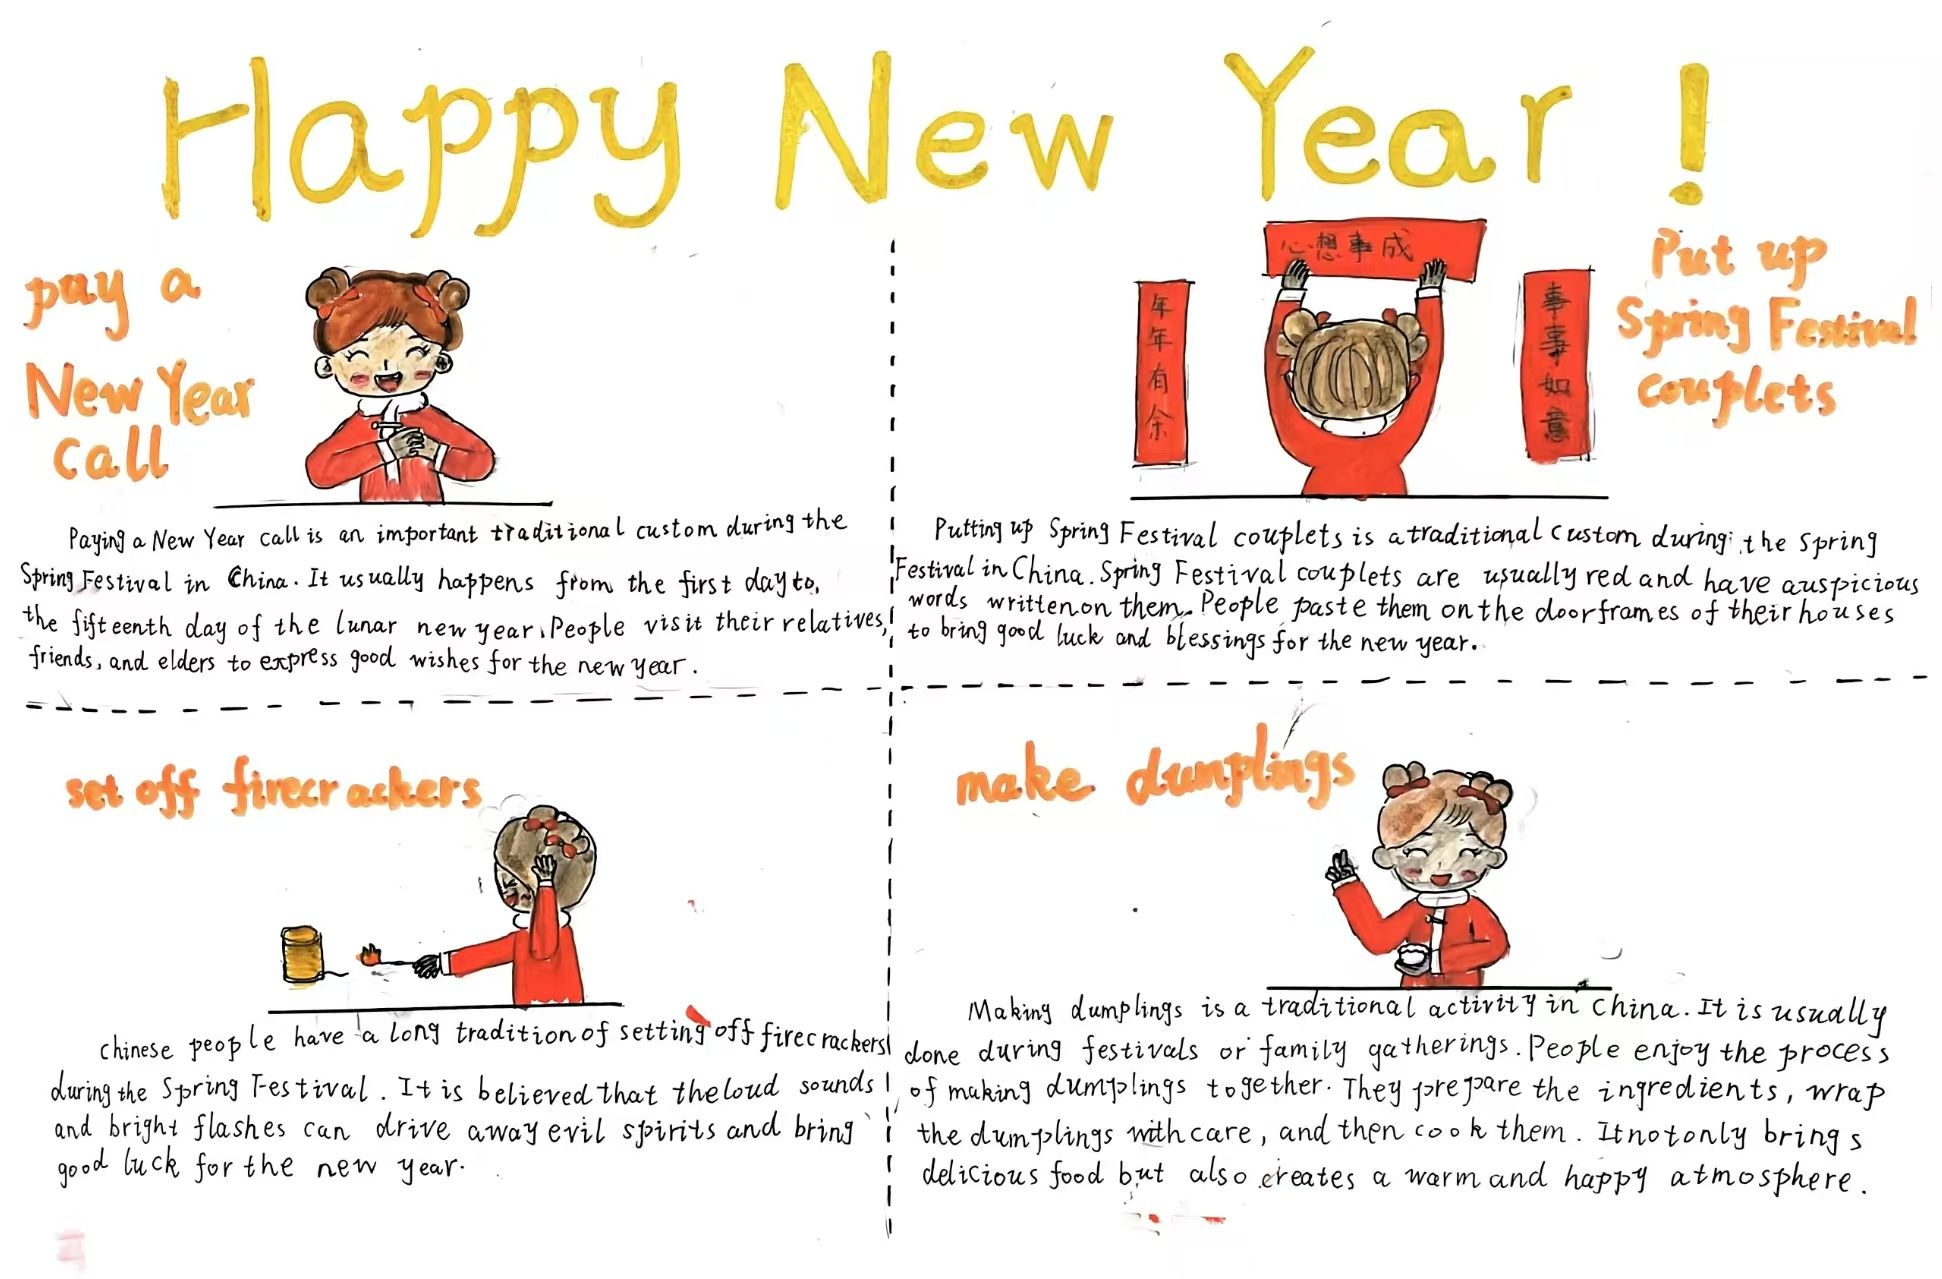 Happy New Year!
pay a
New Year
call
Paying a New Year call is an important traditional custom during the
Spring Festival in China. It usually happens from the first day to,
the fifteenth day of the lunar new year. People visit their relatives,
friends, and elders to express good wishes for the new year.
心想事成
年年有余
事事如意
Put up
Spring Festival
couplets
Putting up Spring Festival couplets is a traditional custom during the Spring
Festival in China. Spring Festival couplets are usually red and have auspicious
words written on them. People paste them on the doorframes of their houses
to bring good luck and blessings for the new year.
set off firecrackers
Chinese people have a long tradition of setting off firecrackers
during the Spring Festival. It is believed that the loud sounds
and bright flashes can drive away evil spirits and bring
good luck for the new year.
make dumplings
Making dumplings is a traditional activity in China. It is usually
done during festivals or family gatherings. People enjoy the process
of making dumplings together. They prepare the ingredients, wrap
the dumplings with care, and then cook them. It not only brings
delicious food but also creates a warm and happy atmosphere.